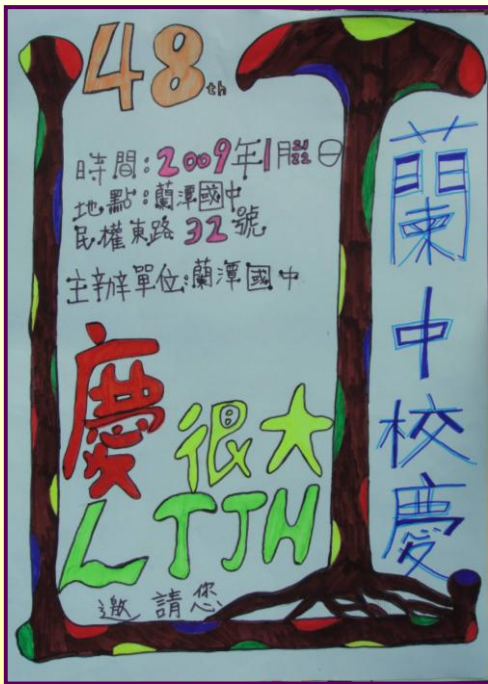 48th
時間:2009年1月21 22日
地點:蘭潭國中
民權東路32號
主辦單位:蘭潭國中
慶很大
LTJH
邀請您
蘭中校慶